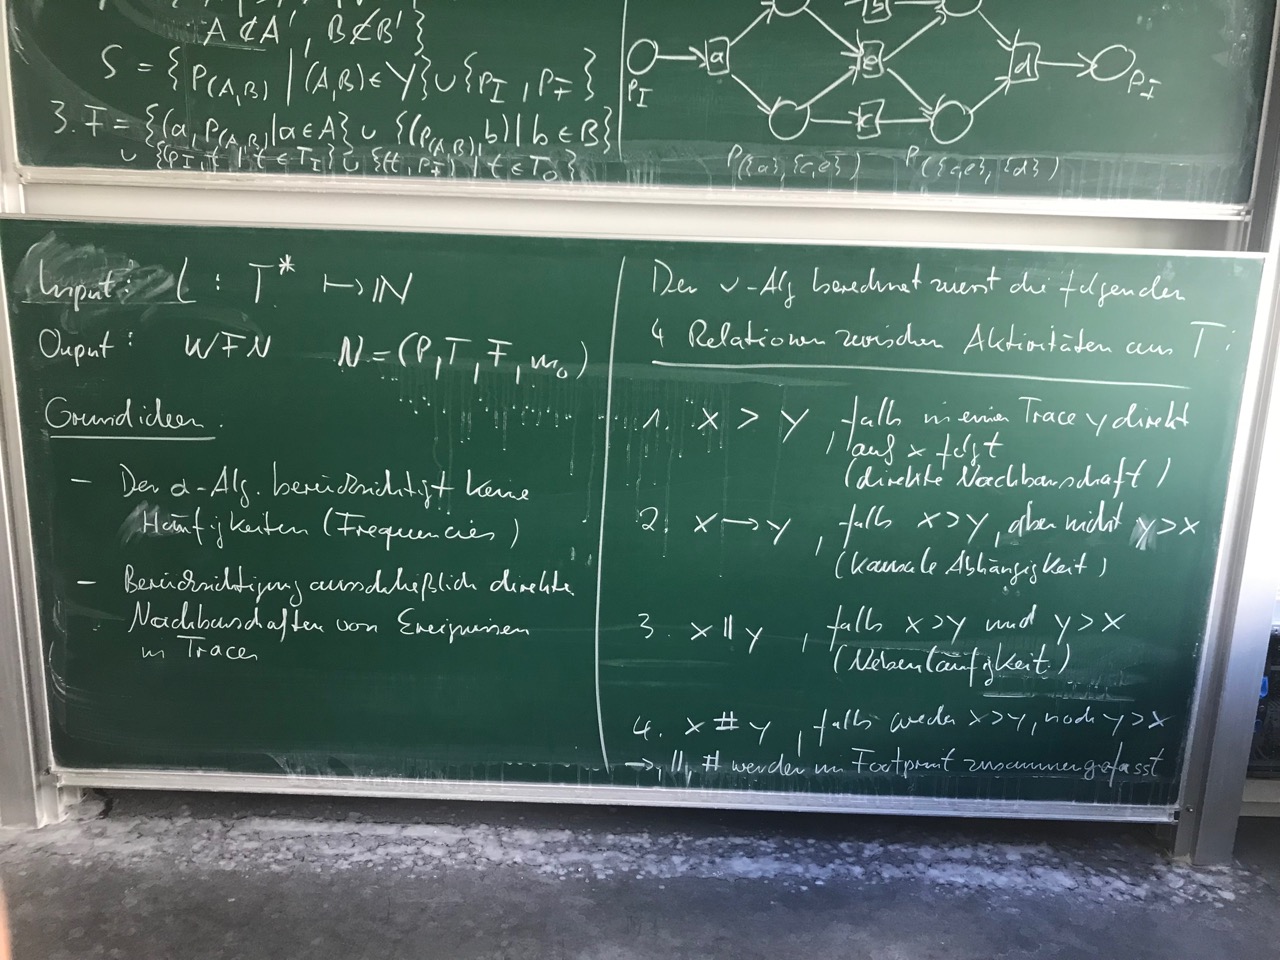 A ⊄ A', B ⊄ B'}
S = {P(A,B) | (A,B) ∈ Y} ∪ {PI, PF}
3. F = {(a, P(A,B) | a ∈ A} ∪ {(P(A,B), b) | b ∈ B}
∪ {(PI, t) | t ∈ TI} ∪ {(t, PF) | t ∈ TO}
b
a
e
d
PI
PF
c
P({a},{c,e})
P({c,e},{d})
Input: L : T* ↦ ℕ
Ouput: WFN N = (P, T, F, m0)
Grundideen.
- Der α-Alg. berücksichtigt keine
Häufigkeiten (Frequencies)
- Berücksichtigung ausschließlich direkte
Nachbarschaften von Ereignissen
in Traces
Der α-Alg berechnet zuerst die folgenden
4 Relationen zwischen Aktivitäten aus T:
1. x > y, falls in einer Trace y direkt
auf x folgt
(direkte Nachbarschaft)
2. x → y, falls x > y, aber nicht y > x
(Kausale Abhängigkeit)
3. x || y, falls x > y und y > x
(Nebenläufigkeit)
4. x # y, falls weder x > y, noch y > x
→, ||, # werden im Footprint zusammengefasst